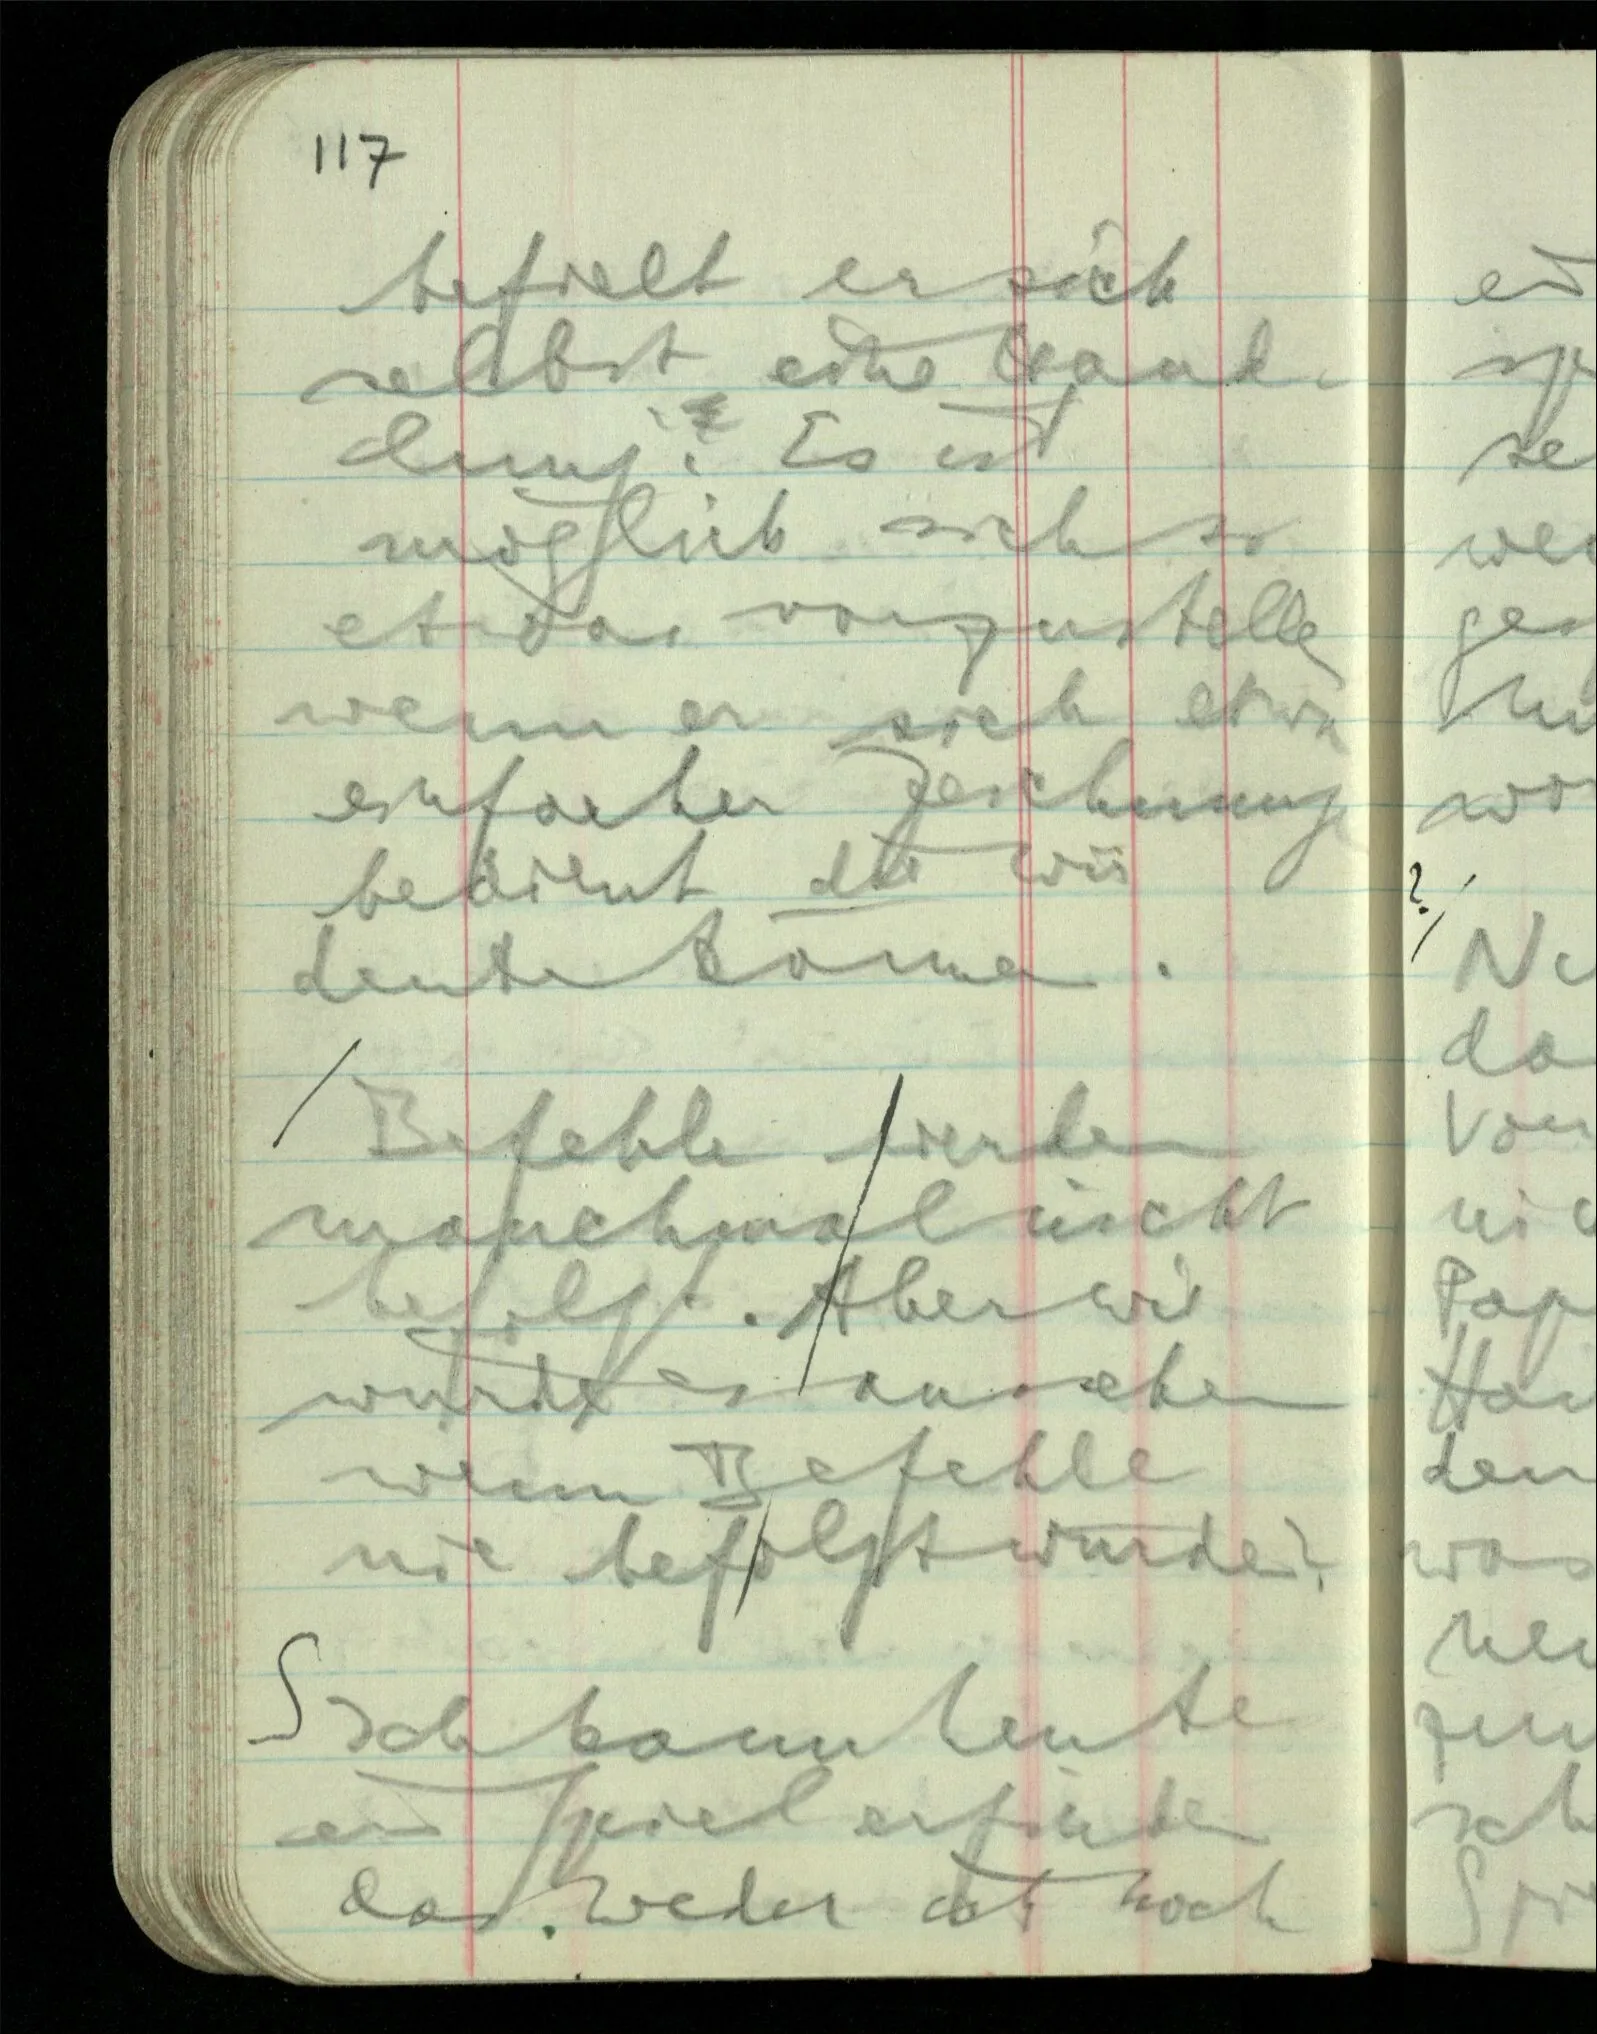 117
befielt er sich
selbst eine Hand-
lung? Es ist
möglich sich so
etwas vorzustelle
wenn er sich etwa
einfacher Zeichnunge
bedient die wir
deute könne.
/ Befehle werden
manchmal nicht
befolgt. Aber wie
würde es aussehen
wenn Befehle
nie befolgt würden?
∫ Ich kann heute
ein Spiel erfinden
das weder ich noch
ein
sp
se
wer
ges
wor
?/
Nu
da
Von
nic
Pap
den
was
zum
sch
Spie